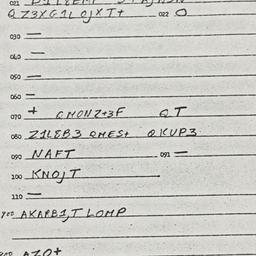 QZ3XG1LOJXT+ 022 O
030 —
040 —
050 —
060 —
070 + GMONZ+3F QT
080 Z1L8B3 QMES+ QKUP3
090 NAFT 091 —
100 KNOJT
110 —
AKAPB1,T LOMP
AZO+